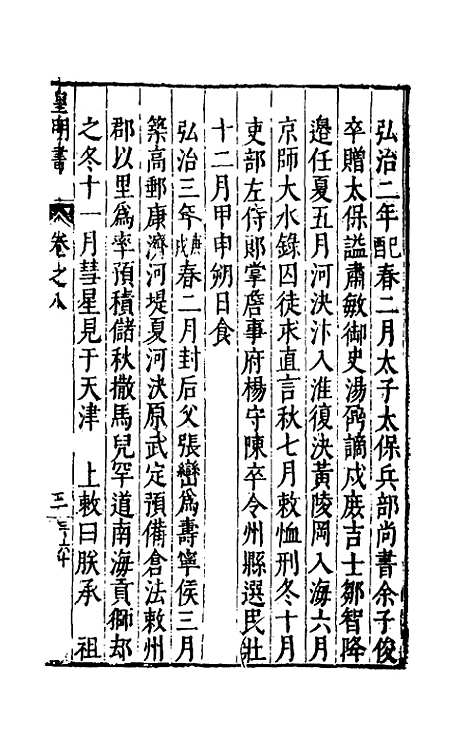 弘治二年己酉春二月太子太保兵部尚書余子俊
卒贈太保謚肅敏御史湯鼐謫戍庶吉士鄒智降
邊任夏五月河決汴入淮復決黃陵岡入海六月
京師大水錄囚徒求直言秋七月敕恤刑冬十月
吏部左侍郎掌詹事府楊守陳卒令州縣選民壯
十二月甲申朔日食
弘治三年庚戌春二月封后父張巒爲壽寧侯三月
築高郵康濟河堤夏河決原武定預備倉法敕州
郡以里爲率預積儲秋撒馬兒罕道南海貢獅却
之冬十一月彗星見于天津　上敕曰朕承　祖
皇明書　卷之八